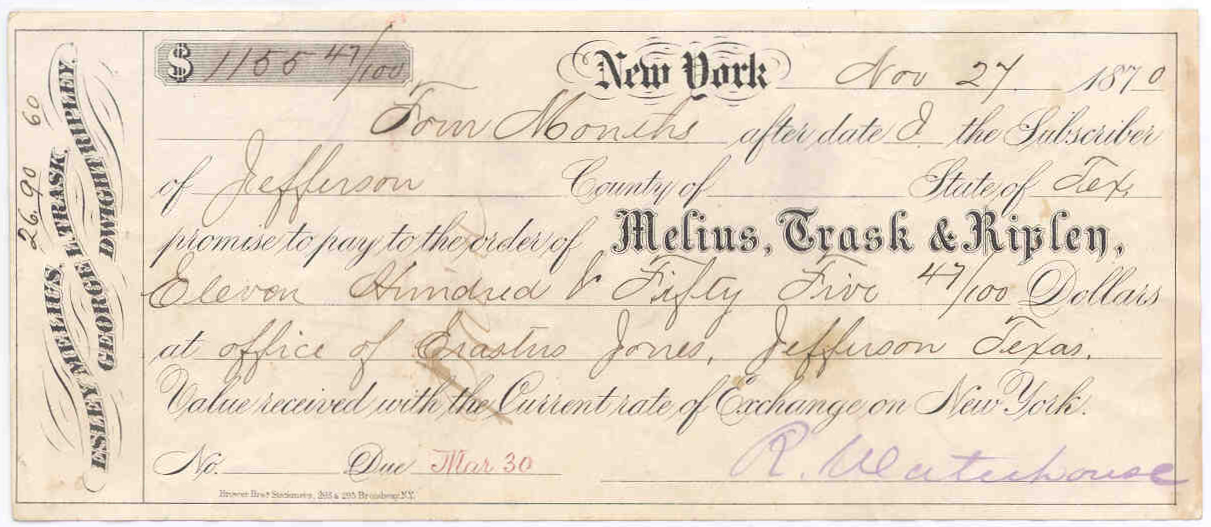 $ 1155 47/100
New York Nov 27 1870
Four Months after date I the Subscriber
of Jefferson County of State of Tex,
promise to pay to the order of Melius, Trask & Ripley,
Eleven Hundred & Fifty Five 47/100 Dollars
at office of Erastus Jones, Jefferson Texas.
Value received with the Current rate of Exchange on New York.
No. Due Mar 30
R. Waterhouse
Brower Bro's Stationers, 293 & 295 Broadway N.Y.
ESLEY MELIUS,
GEORGE I. TRASK,
DWIGHT RIPLEY.
26.90 60